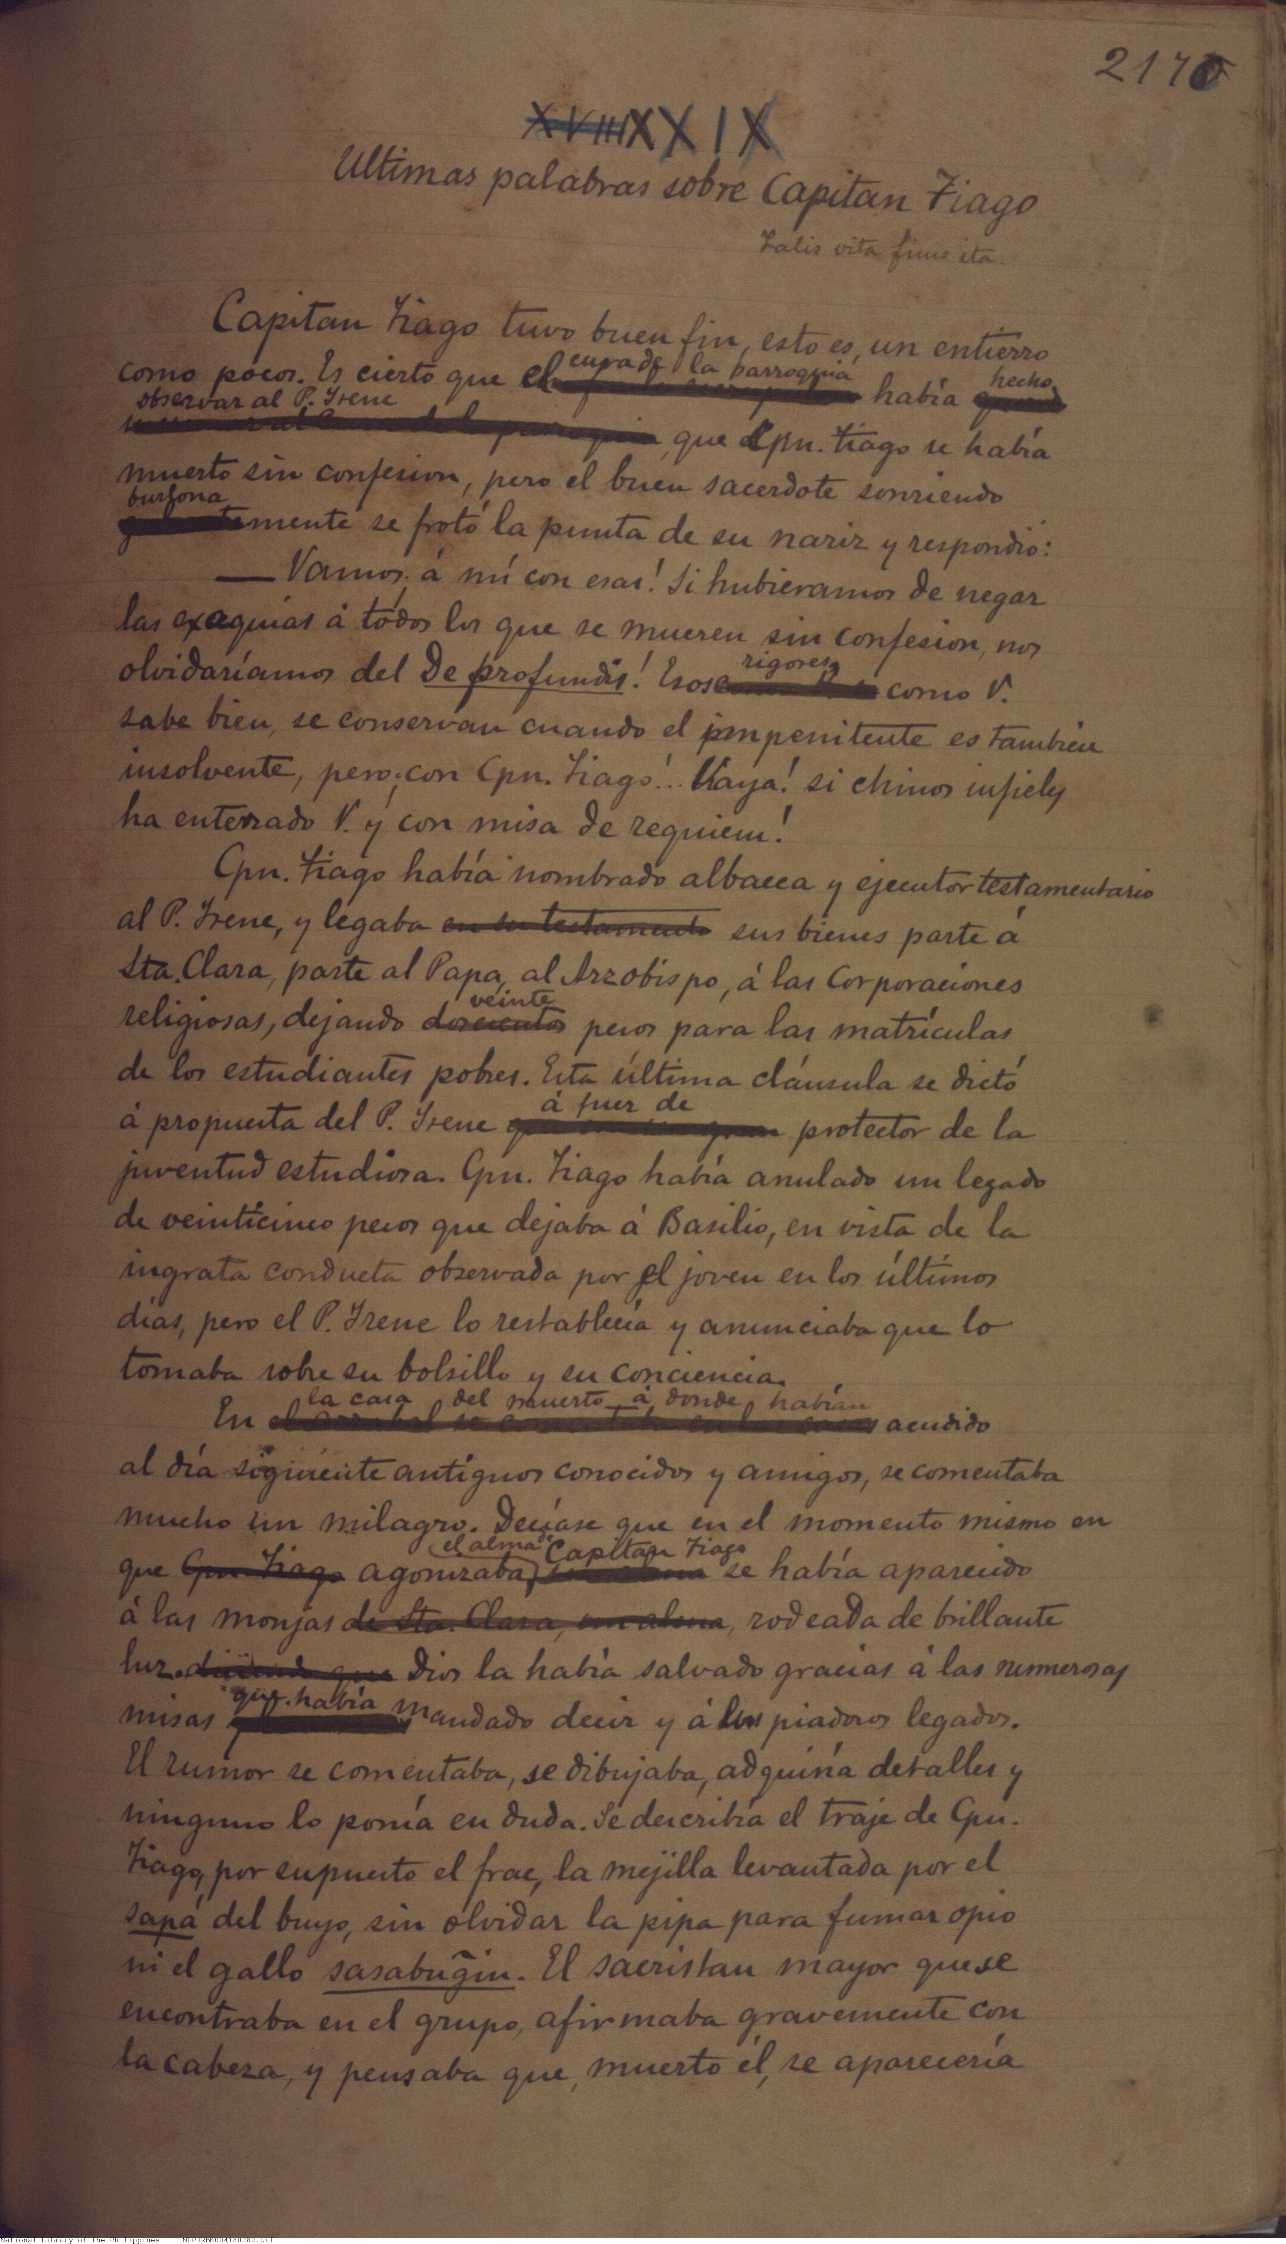 2170
XVIII XXIX
Ultimas palabras sobre Capitan Tiago
Talis vita finis ita.
Capitan Tiago tuvo buen fin, esto es, un entierro
como pocos. Es cierto que el cura de la parroquia había hecho
observar al P. Irene, que Cpn. Tiago se había
muerto sin confesion, pero el buen sacerdote sonriendo
burlonamente se frotó la punta de su nariz y respondió:
— Vamos, á mí con esas! Si hubieramos de negar
las exequias á todos los que se mueren sin confesion, nos
olvidaríamos del De profundis! Esos rigores como V.
sabe bien, se conservan cuando el impenitente es tambien
insolvente, pero ¡con Cpn. Tiago!.. Vaya! si chinos infieles
ha enterrado V. y ¡con misa de requiem!
Cpn. Tiago había nombrado albacea y ejecutor testamentario
al P. Irene, y legaba en su testamento sus bienes parte á
Sta. Clara, parte al Papa, al Arzobispo, á las Corporaciones
religiosas, dejando doscientos veinte pesos para las matrículas
de los estudiantes pobres. Esta última cláusula se dictó
á propuesta del P. Irene á fuer de protector de la
juventud estudiosa. Cpn. Tiago había anulado un legado
de veinticinco pesos que dejaba á Basilio, en vista de la
ingrata conducta observada por el joven en los últimos
días, pero el P. Irene lo restablecía y anunciaba que lo
tomaba sobre su bolsillo y su conciencia.
En la casa del muerto á donde habían acudido
al día siguiente antiguos conocidos y amigos, se comentaba
mucho un milagro. Decíase que en el momento mismo en
que Cpn. Tiago agonizaba, el alma de Capitan Tiago se había aparecido
á las monjas de Sta. Clara, un alma, rodeada de brillante
luz. diciendo que Dios la había salvado gracias á las numerosas
misas que había mandado decir y á los piadosos legados.
El rumor se comentaba, se dibujaba, adquiría detalles y
ninguno lo ponía en duda. Se describía el traje de Cpn.
Tiago, por supuesto el frac, la mejilla levantada por el
sapá del buyo, sin olvidar la pipa para fumar opio
ni el gallo sasabuñgin. El sacristan mayor que se
encontraba en el grupo, afirmaba gravemente con
la cabeza, y pensaba que, muerto él, se aparecería
National Library of the Philippines